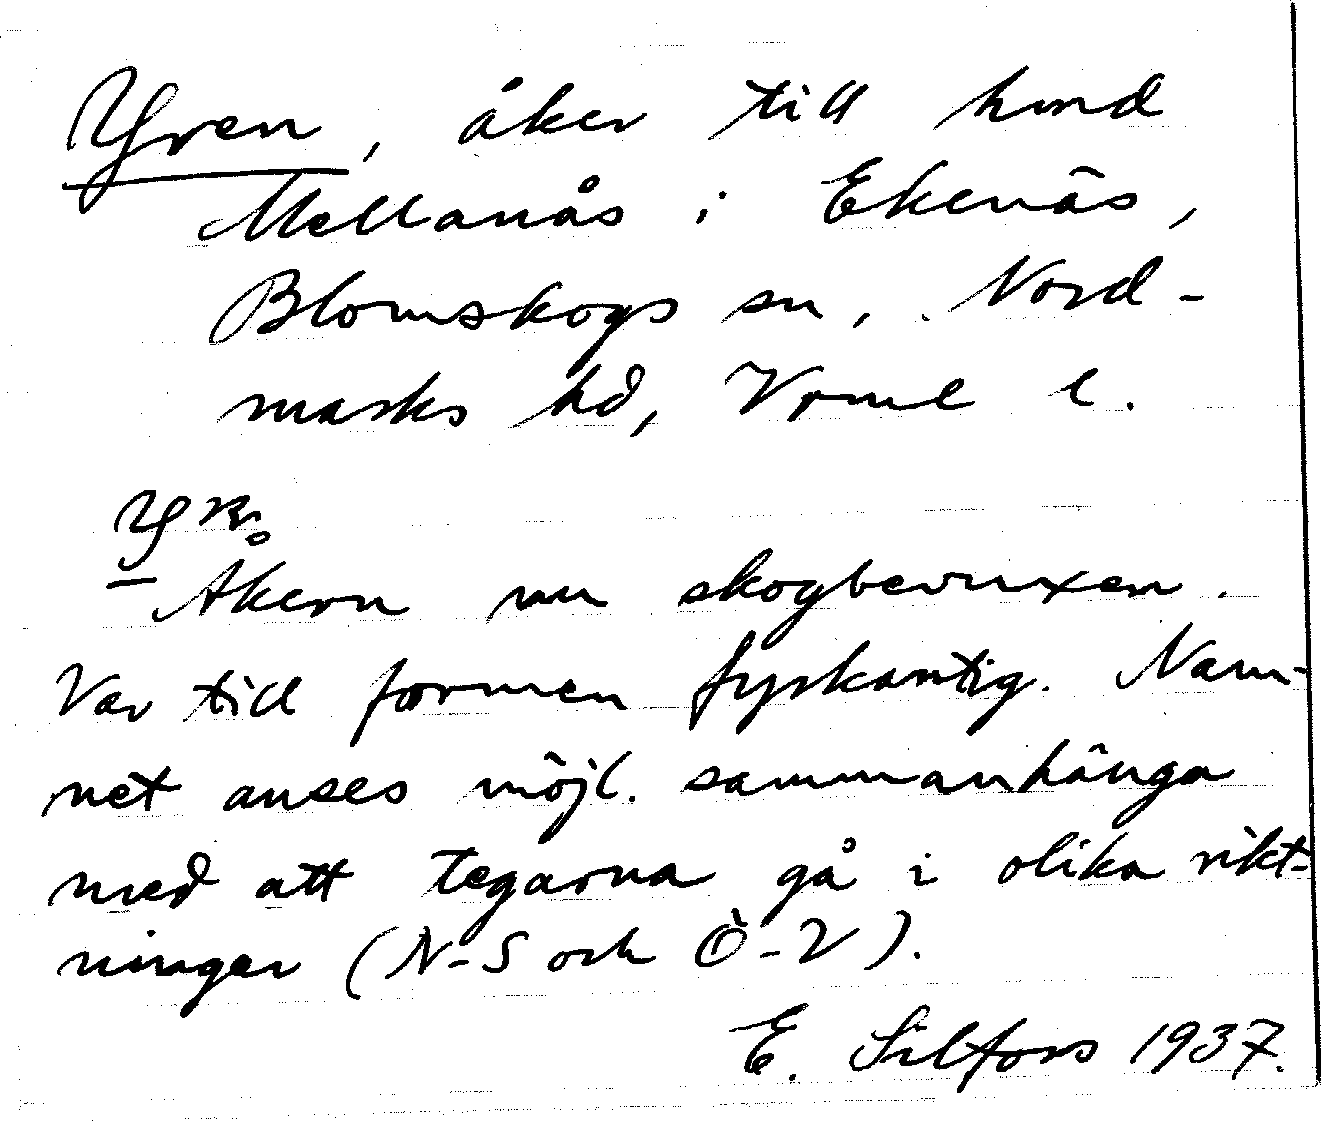 Yren, åker till hmd
Mellanås i Ekenäs,
Blomskogs sn, Nord-
marks hd, Vrml l.
Åkern nu skogbevuxen.
Var till formen fyrkantig. Nam-
net anses möjl. sammanhänga
med att tegarna gå i olika rikt-
ningar (N-S och Ö-V).
E. Silfors 1937.